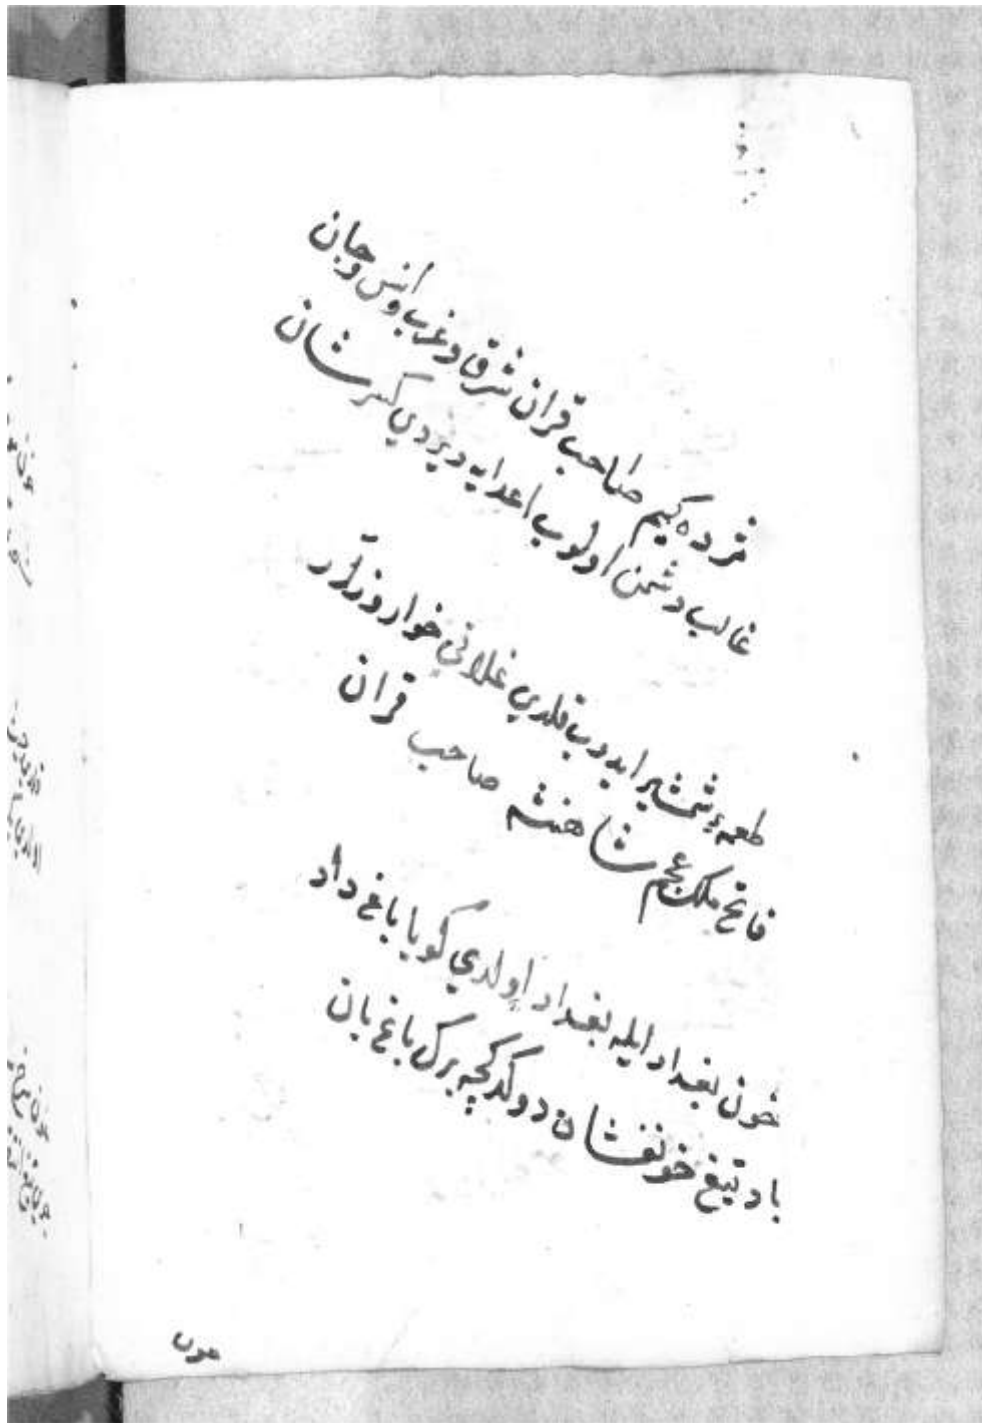 مژده كیم صاحب قران شرق و غرب و انس و جان
غالب دشمن اولوب اعدایه ویردي كسر شان
طعمهٔ شمشیر ایدوب قلدي غلاتي خوار و زار
فاتح ملك عجم شاهنشه صاحب قران
خون بغداد ایله بغداد اولدي كویا باغ داد
باد تیغ خونفشان دوكدكجه برك باغ بان